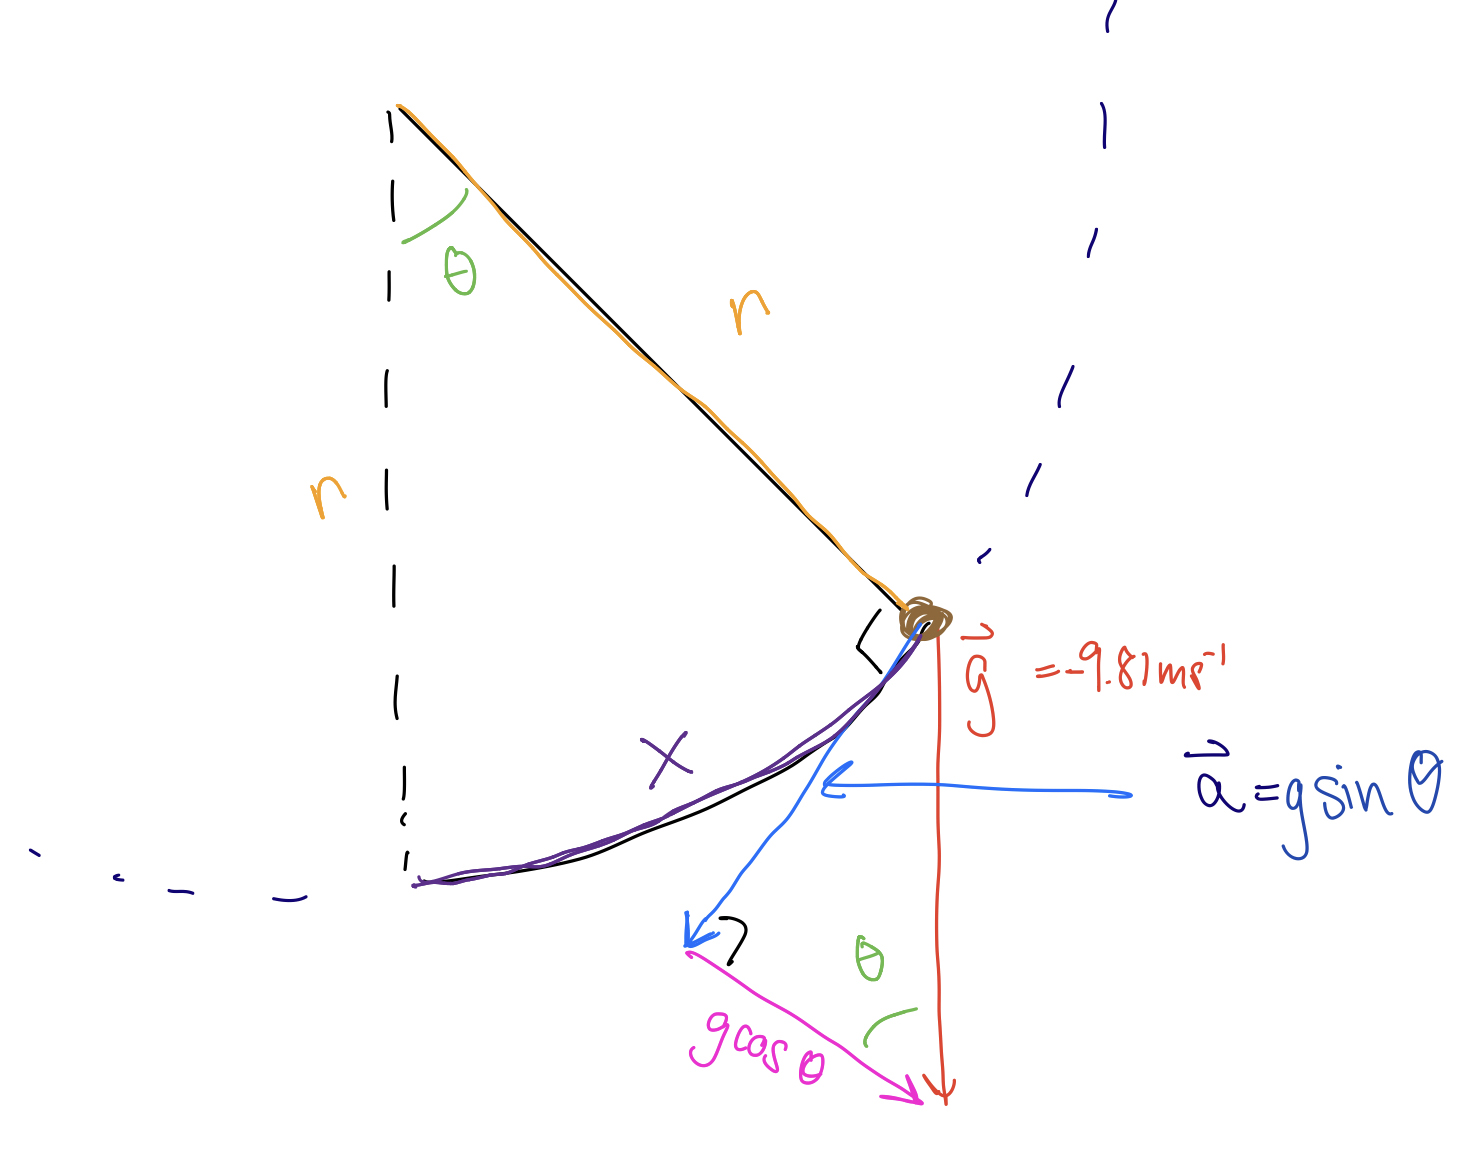 θ
r
r
g⃗ = -9.81ms⁻¹
x
a⃗ = g sin θ
θ
g cos θ